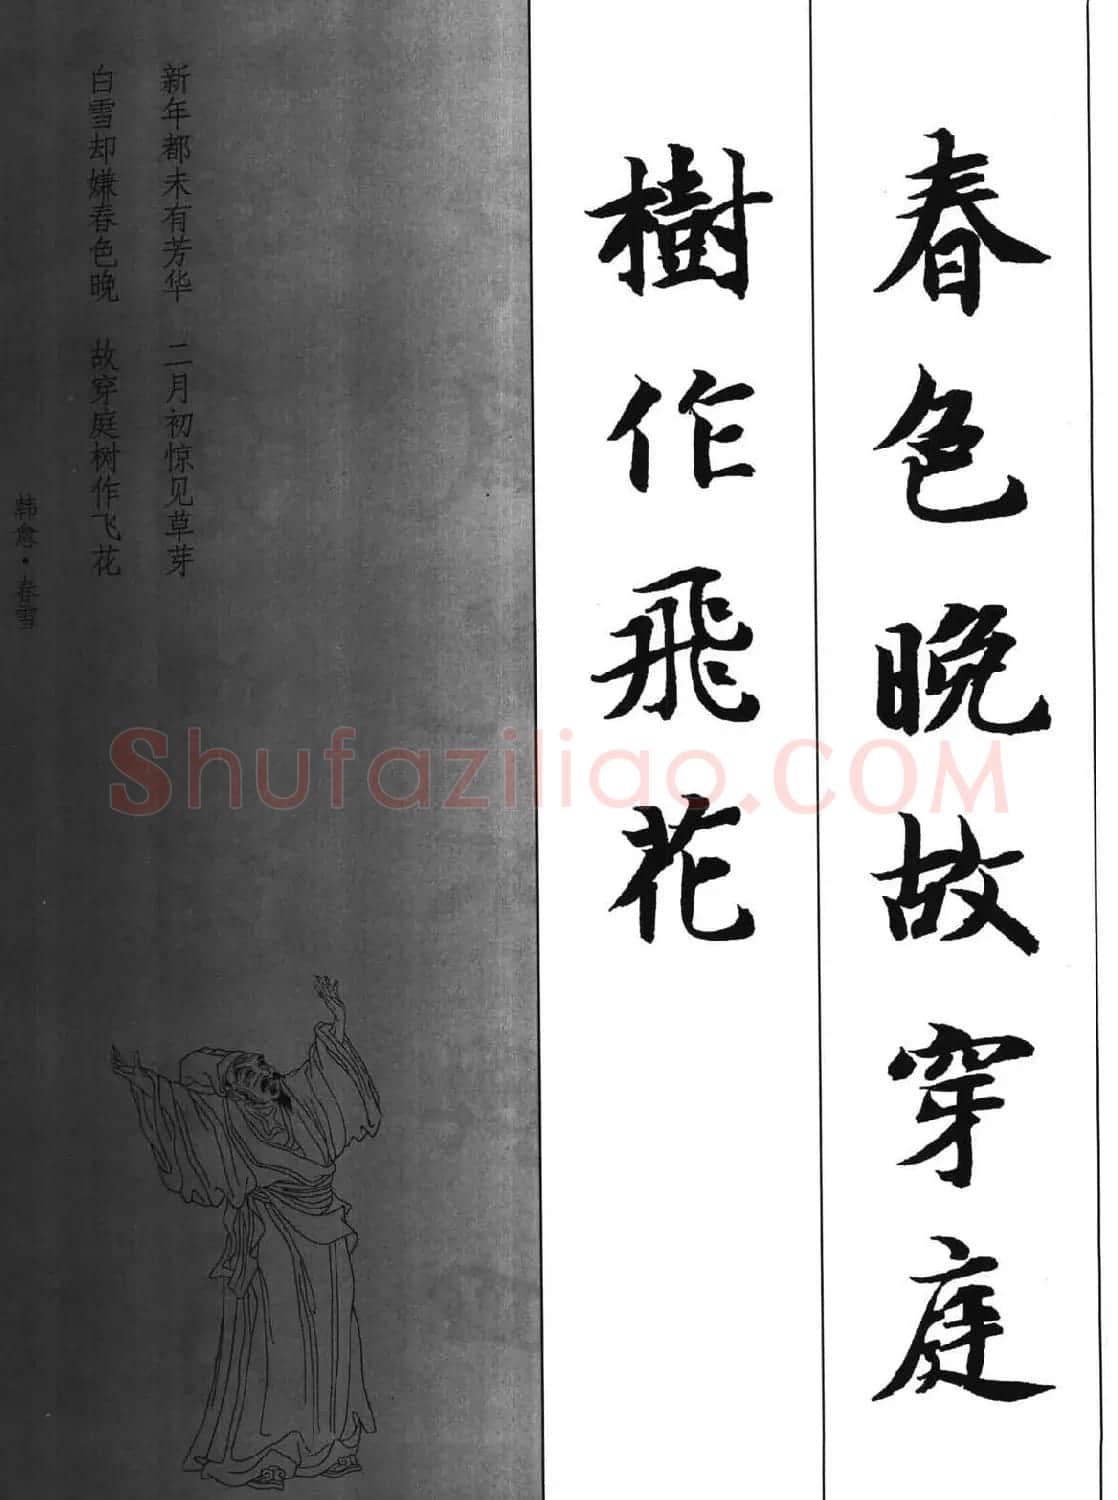 春色晚故穿庭
樹作飛花
新年都未有芳华 二月初惊见草芽
白雪却嫌春色晚 故穿庭树作飞花
韩愈·春雪
Shufaziliao.COM